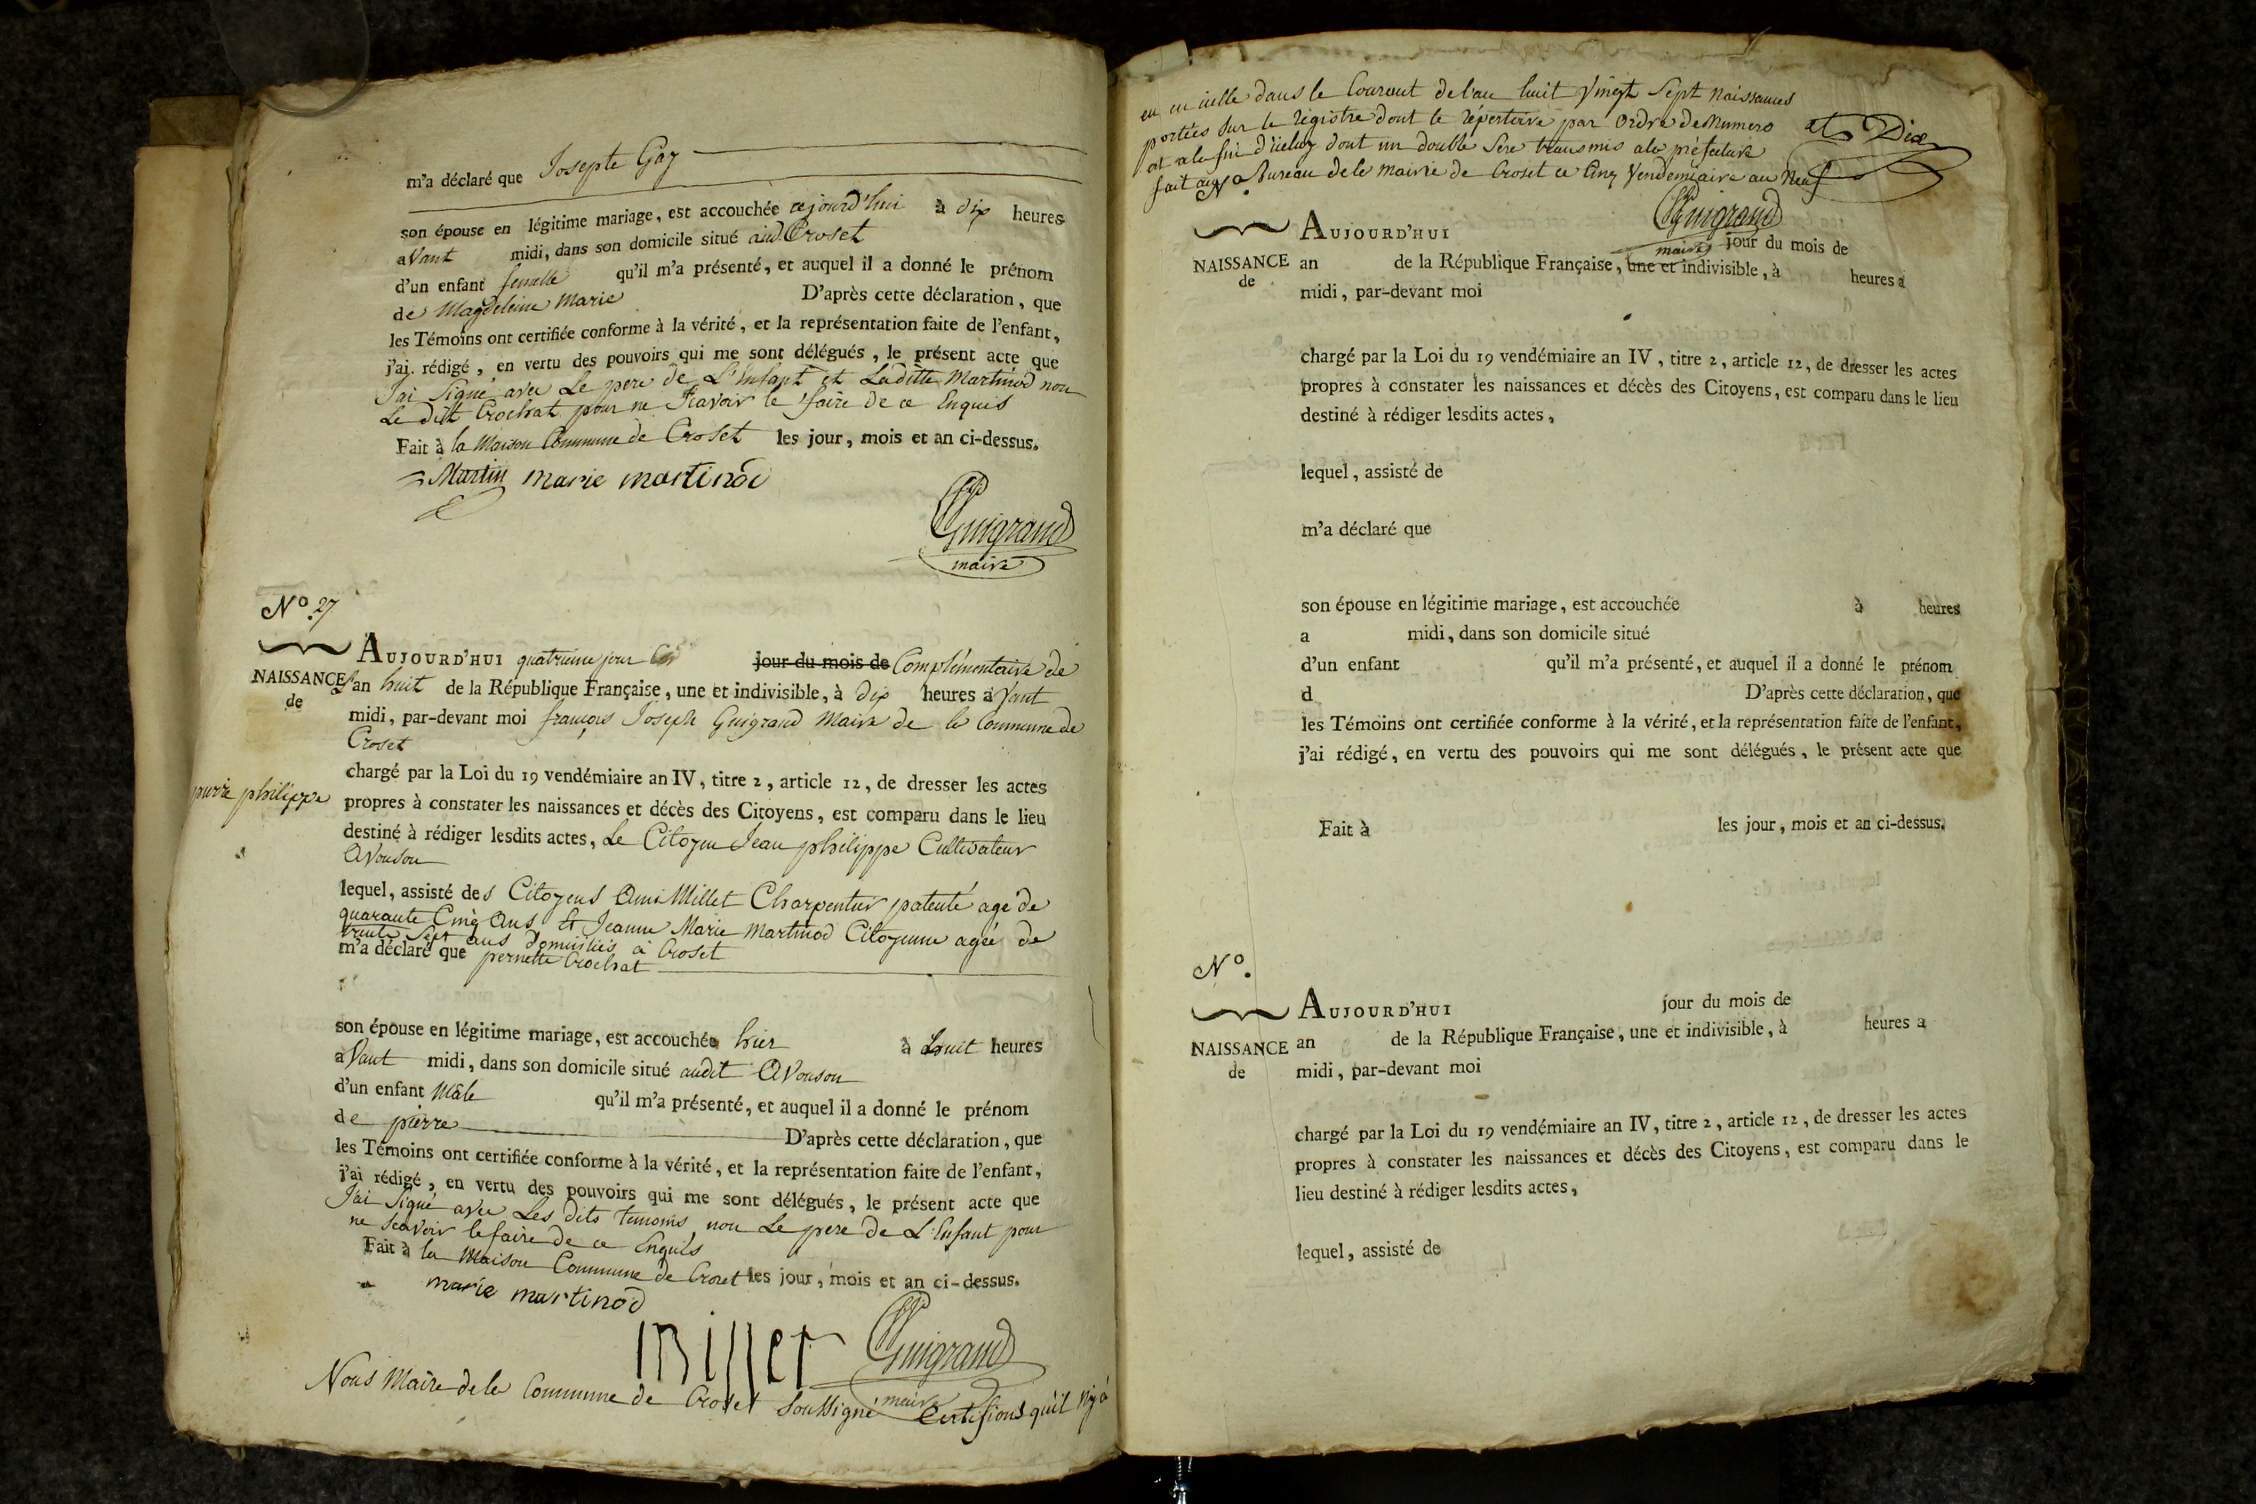 m'a déclaré que Josepte Gay
son épouse en légitime mariage, est accouchée cejourd'hui à dix heures
avant midi, dans son domicile situé aud. Croset
d'un enfant femelle qu'il m'a présenté, et auquel il a donné le prénom
de Magdeleine Marie D'après cette déclaration, que
les Témoins ont certifiée conforme à la vérité, et la représentation faite de l'enfant,
j'ai rédigé, en vertu des pouvoirs qui me sont délégués, le présent acte que
J'ai Signé avec Le pere de L'Enfant et Laditte Martinod non
Le dit Crochat pour ne Scavoir le faire de ce Enquis
Fait à la Maison Commune de Croset les jour, mois et an ci-dessus.
Martin marie martinod
Guigrand
maire
N.º 27
AUJOURD'HUI quatrieme jour jour du mois de Complémentaire de
NAISSANCE l'an huit de la République Française, une et indivisible, à dix heures avant
de
midi, par-devant moi françois Joseph Guigrand Maire de la Commune de
Croset
chargé par la Loi du 19 vendémiaire an IV, titre 2, article 12, de dresser les actes
pierre philippe
propres à constater les naissances et décès des Citoyens, est comparu dans le lieu
destiné à rédiger lesdits actes, Le Citoyen Jean philippe Cultivateur
Avouson
lequel, assisté des Citoyens Ami Millet Charpentier patenté agé de
quarante Cinq Ans Et Jeanne Marie Martinod Citoyenne agée de
trente Sept ans domiciliés à Croset
m'a déclaré que pernette Crochat
son épouse en légitime mariage, est accouchée hier à huit heures
avant midi, dans son domicile situé audit Avouson
d'un enfant Mâle qu'il m'a présenté, et auquel il a donné le prénom
de pierre D'après cette déclaration, que
les Témoins ont certifiée conforme à la vérité, et la représentation faite de l'enfant,
j'ai rédigé, en vertu des pouvoirs qui me sont délégués, le présent acte que
J'ai Signé avec Les dits temoins, non Le pere de L'Enfant pour
ne scavoir le faire de ce Enquis
Fait à la Maison Commune de Croset les jour, mois et an ci-dessus.
marie martinod
Millet Guigrand
maire
Nous Maire de la Commune de Croset Soussigné Certifions qu'il n'y à
eu en icelle dans le Courant de l'an huit Vingt Sept Naissances
portées Sur le registre dont le répertoire par Ordre de Numero
est a la fin d'icelui dont un double Sera transmis a la préfecture
fait au Bureau de la Mairie de Croset ce Cinq Vendemiaire an Neuf
Guigrand
maire
N.º
AUJOURD'HUI jour du mois de
NAISSANCE an de la République Française, une et indivisible, à heures a
de
midi, par-devant moi
chargé par la Loi du 19 vendémiaire an IV, titre 2, article 12, de dresser les actes
propres à constater les naissances et décès des Citoyens, est comparu dans le lieu
destiné à rédiger lesdits actes,
lequel, assisté de
m'a déclaré que
son épouse en légitime mariage, est accouchée à heures
a midi, dans son domicile situé
d'un enfant qu'il m'a présenté, et auquel il a donné le prénom
d D'après cette déclaration, que
les Témoins ont certifiée conforme à la vérité, et la représentation faite de l'enfant,
j'ai rédigé, en vertu des pouvoirs qui me sont délégués, le présent acte que
Fait à les jour, mois et an ci-dessus.
N.º
AUJOURD'HUI jour du mois de
NAISSANCE an de la République Française, une et indivisible, à heures a
de midi, par-devant moi
chargé par la Loi du 19 vendémiaire an IV, titre 2, article 12, de dresser les actes
propres à constater les naissances et décès des Citoyens, est comparu dans le
lieu destiné à rédiger lesdits actes,
lequel, assisté de